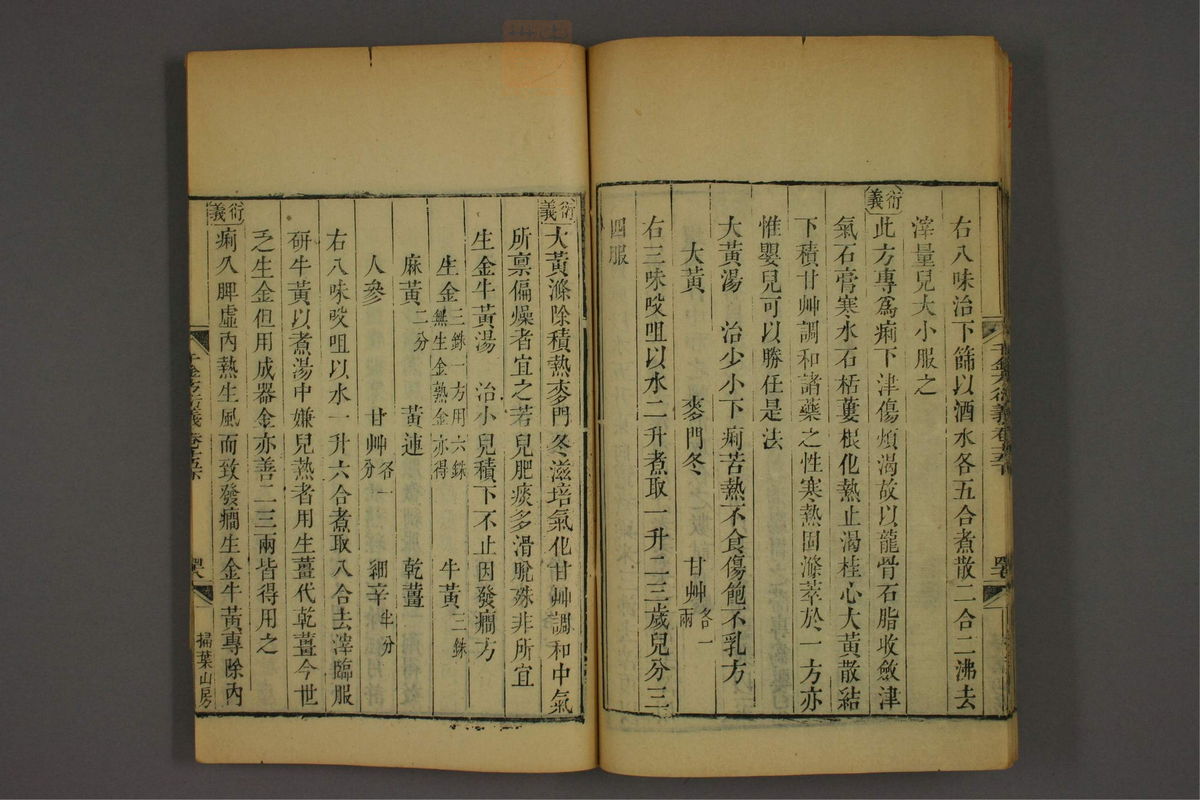 右八味治下篩以酒水各五合煮散二合二沸去
滓量兒大小服之
衍義
此方專爲痢下津傷煩渴故以龍骨石脂收斂津
氣石膏寒水石栝蔞根化熱止渴桂心大黃散結
下積甘艸調和諸藥之性寒熱固滌萃於一方亦
惟嬰兒可以勝任是法
大黃湯　治少小下痢苦熱不食傷飽不乳方
大黃　麥門冬　甘艸各一兩
右三味㕮咀以水二升煮取一升二三歲兒分三
四服
衍義
大黃滌除積熱麥門冬滋培氣化甘艸調和中氣
所禀偏燥者宜之若兒肥痰多滑脫殊非所宜
生金牛黃湯　治小兒積下不止因發癎方
生金三銖一方用六銖無生金熟金亦得　牛黃三銖
麻黃二分　黃連　乾薑
人參　甘艸各一分　細辛半分
右八味㕮咀以水一升六合煮取八合去滓臨服
研牛黃以煮湯中嫌兒熱者用生薑代乾薑今世
乏生金但用成器金亦善二三兩皆得用之
衍義
痢久脾虛內熱生風而致發癎生金牛黃專除內
千金方衍義卷五
掃葉山房